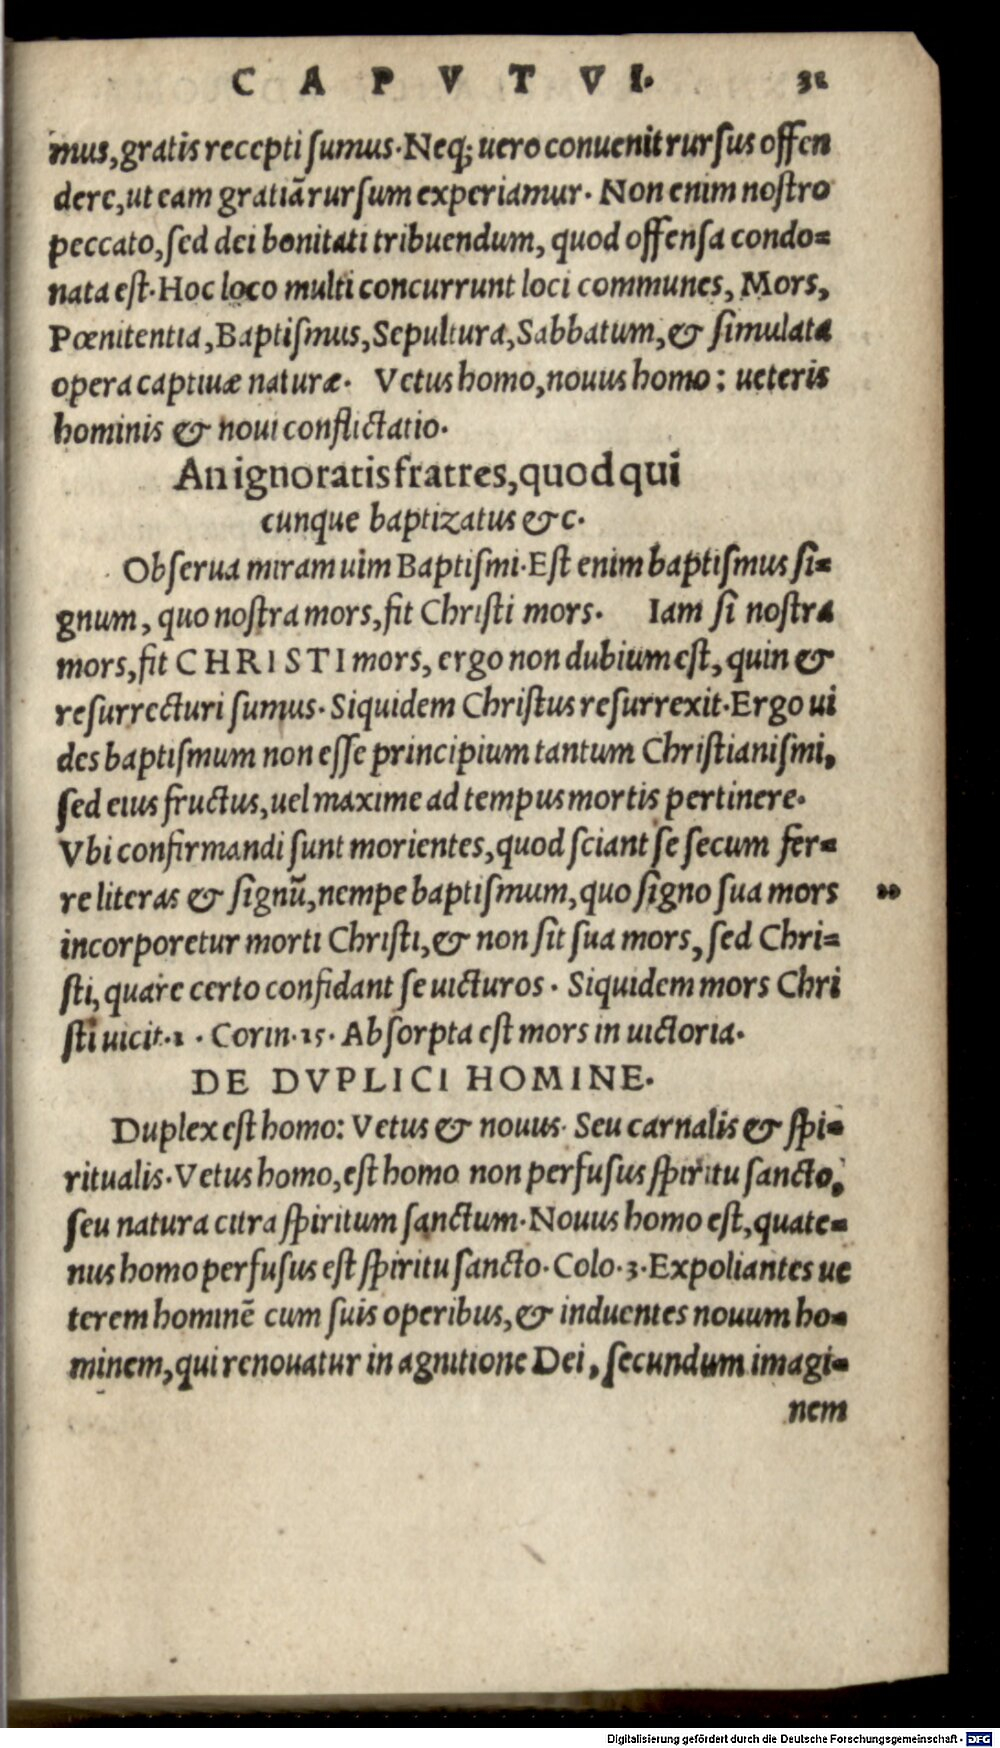 CAPVT VI. 32
mus, gratis recepti ſumus. Neq; uero conuenit rurſus offen
dere, ut eam gratiã rurſum experiamur. Non enim noſtro
peccato, ſed dei bonitati tribuendum, quod offenſa condo=
nata eſt. Hoc loco multi concurrunt loci communes, Mors,
Pœnitentia, Baptiſmus, Sepultura, Sabbatum, & ſimulata
opera captiuæ naturæ. Vetus homo, nouus homo: ueteris
hominis & noui conflictatio.
An ignoratis fratres, quod qui
cunque baptizatus &c.
Obſerua miram uim Baptiſmi. Eſt enim baptiſmus ſi=
gnum, quo noſtra mors, fit Chriſti mors. Iam ſi noſtra
mors, fit CHRISTI mors, ergo non dubium eſt, quin &
reſurrecturi ſumus. Siquidem Chriſtus reſurrexit. Ergo ui
des baptiſmum non eſſe principium tantum Chriſtianiſmi,
ſed eius fructus, uel maxime ad tempus mortis pertinere.
Vbi confirmandi ſunt morientes, quod ſciant ſe ſecum fer=
re literas & ſignũ, nempe baptiſmum, quo ſigno ſua mors
incorporetur morti Chriſti, & non ſit ſua mors, ſed Chri=
ſti, quare certo confidant ſe uicturos. Siquidem mors Chri
ſti uicit. 1. Corin. 15. Abſorpta eſt mors in uictoria.
DE DVPLICI HOMINE.
Duplex eſt homo: Vetus & nouus. Seu carnalis & ſpi=
ritualis. Vetus homo, eſt homo non perfuſus ſpiritu ſancto,
ſeu natura citra ſpiritum ſanctum. Nouus homo eſt, quate=
nus homo perfuſus eſt ſpiritu ſancto. Colo. 3. Expoliantes ue
terem hominẽ cum ſuis operibus, & induentes nouum ho=
minem, qui renouatur in agnitione Dei, ſecundum imagi=
nem
Digitalisierung gefördert durch die Deutsche Forschungsgemeinschaft - DFG